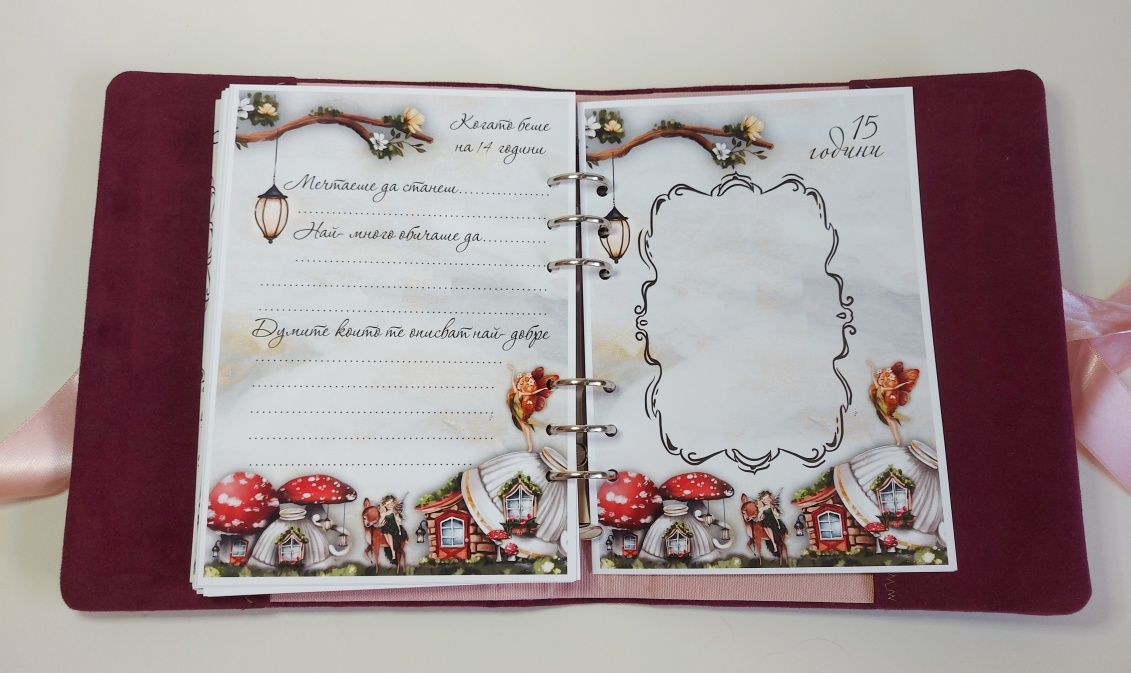 Когато беше
на 14 години
Мечтаеше да станеш....................
Най- много обичаше да..............
Думите които те описват най- добре
15
години